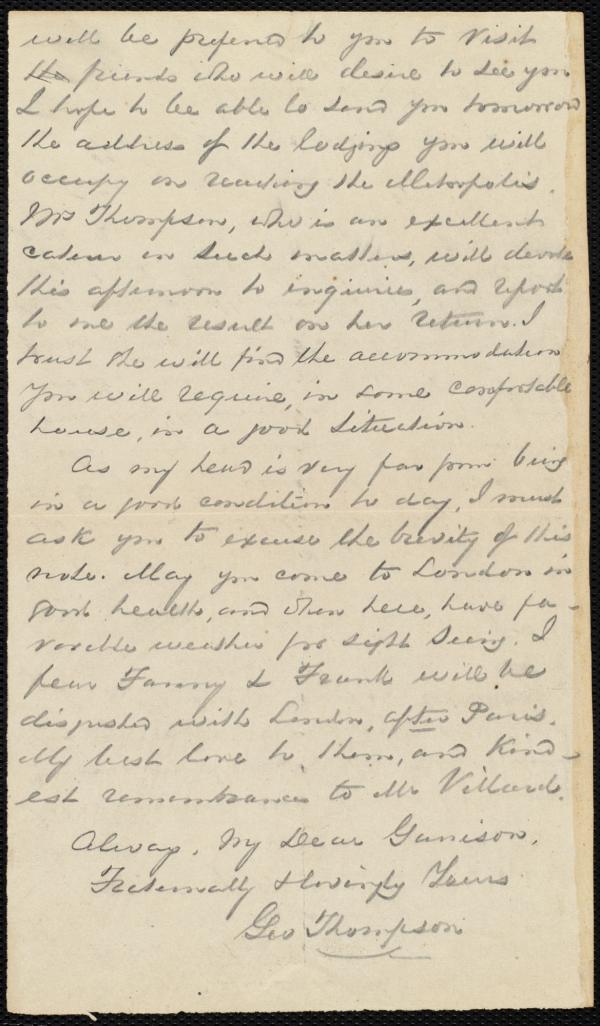 will be prefered to you to visit
the friends who will desire to see you
I hope to be able to send you tomorrow
the address of the lodgings you will
occupy on reaching the Metropolis.
Mrs Thompson, who is an excellent
caterer in such matters, will devote
this afternoon to inquiries, and report
to me the result on her return. I
trust she will find the accommodation
you will require, in some comfortable
house, in a good situation.
As my head is very far from being
in a good condition to day, I must
ask you to excuse the brevity of this
note. May you come to London in
good health, and when here, have fa-
vorable weather for sight seeing. I
fear Fanny & Frank will be
disgusted with London, after Paris.
My best love to them, and kind-
est remembrances to Mr Villard.
Always, My Dear Garrison,
Fraternally & lovingly Yours
Geo Thompson